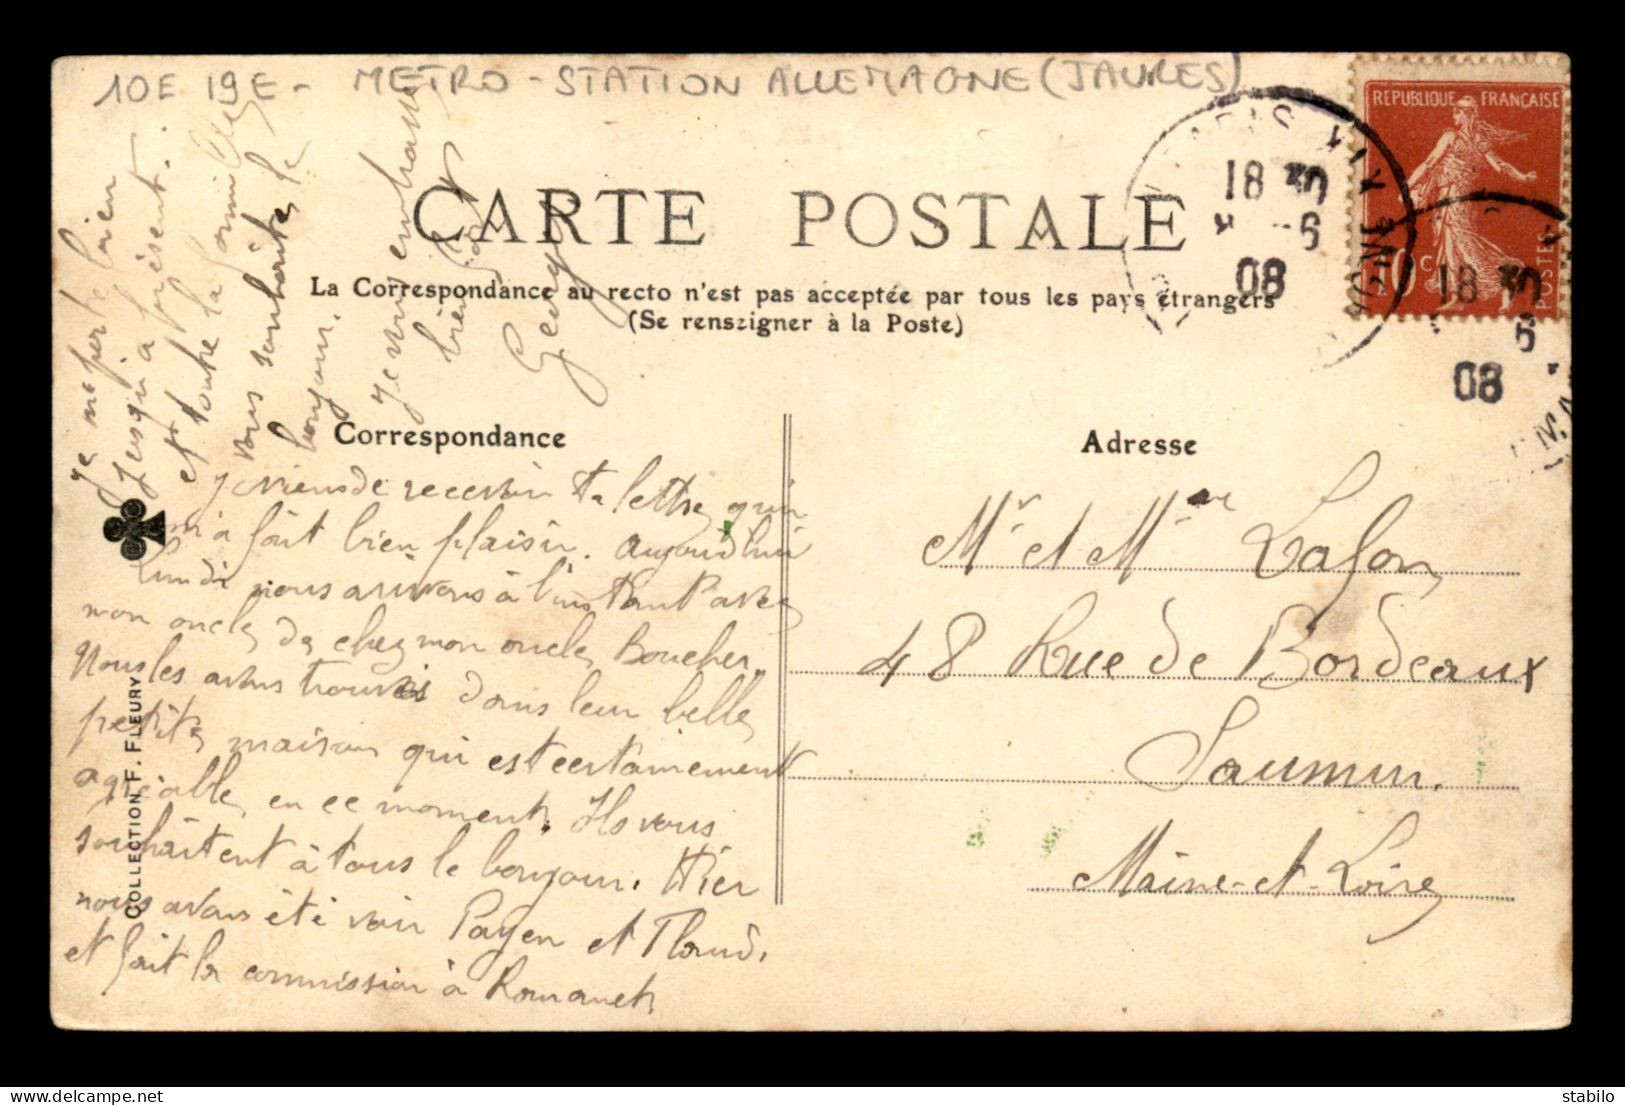 10E 19E - METRO - STATION ALLEMAGNE (JAURES)
REPUBLIQUE FRANÇAISE
10c
POSTES
PARIS
18 30
8 - 6
08
18 30
6
08
CARTE POSTALE
La Correspondance au recto n'est pas acceptée par tous les pays étrangers
(Se renszigner à la Poste)
Correspondance
Adresse
Je viens de recevoir ta lettre qui
m'a fait bien plaisir. aujourd'hui
Lundi nous arrivons à l'instant avec
mon oncle de chez mon oncle Boucher.
Nous les avons trouvés dans leur belle
petite maison qui est certainement
agréable en ce moment. Ils vous
souhaitent à tous le bonjour. Hier
nous avons été voir Payen et
et fait la commission à
Je me porte bien
jusqu'à présent.
et toute la famille
vous souhaite le
bonjour.
Je vous embrasse
bien
Georges
Mr et Mme Lafon
48 Rue de Bordeaux
Saumur.
Maine-et-Loire
COLLECTION F. FLEURY
stabilo
www.delcampe.net